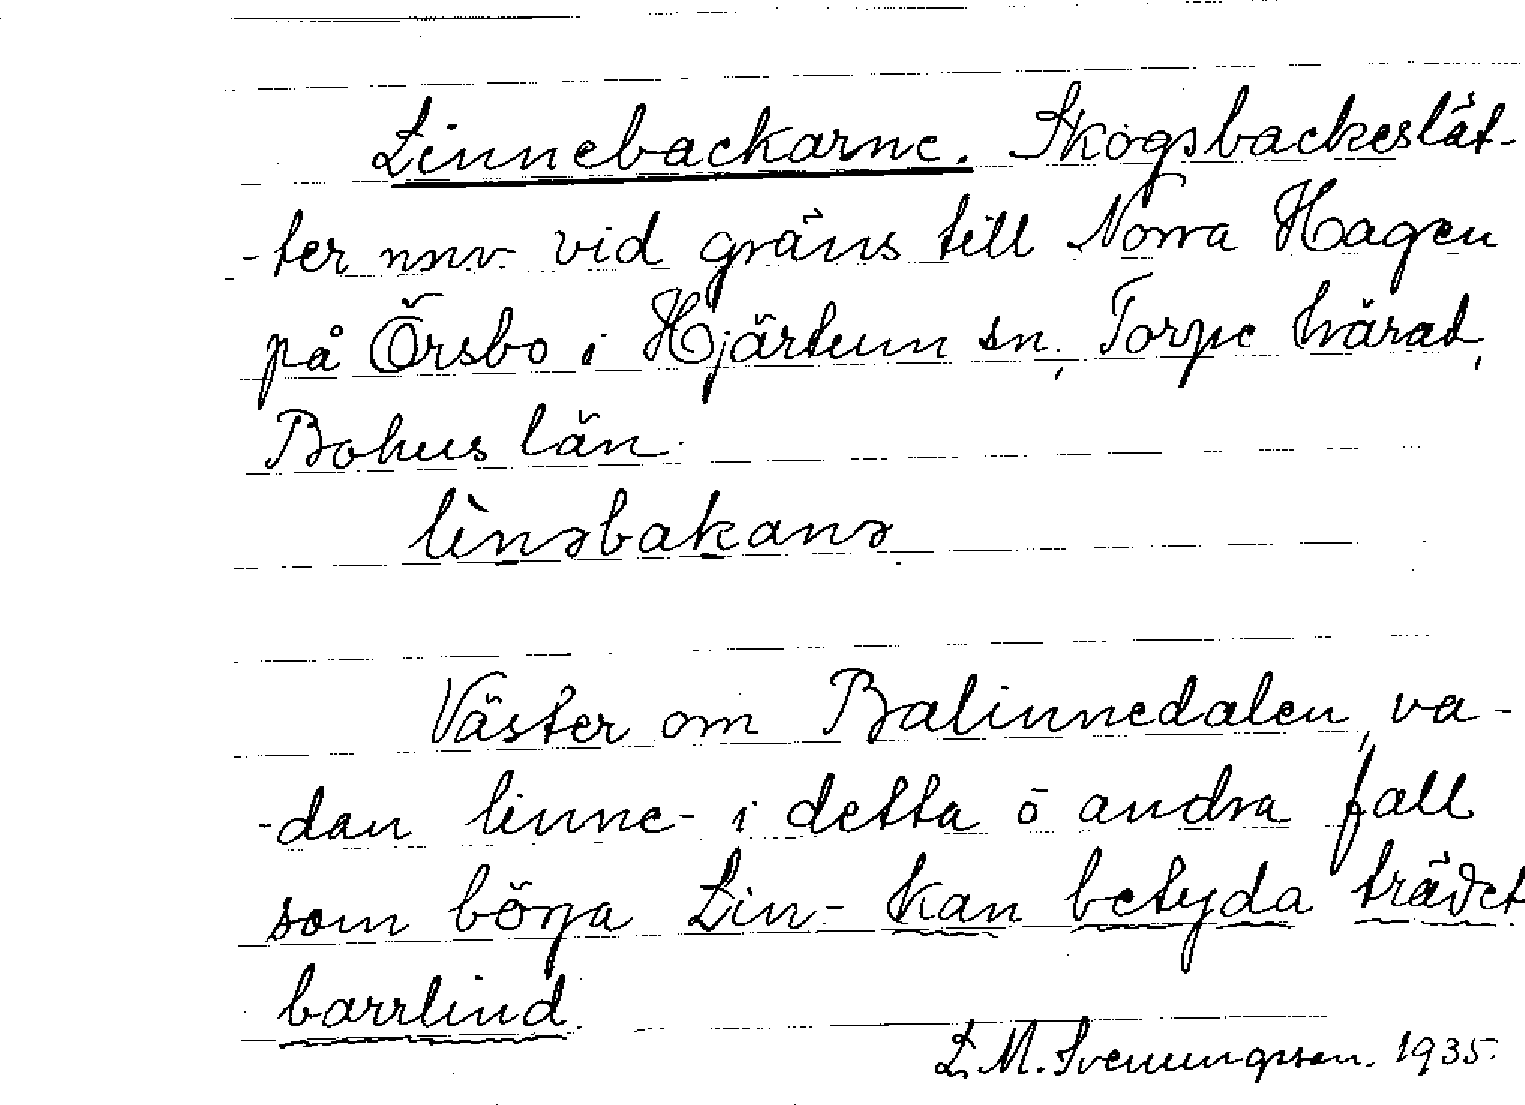 Linnebackarne. Skogsbackeslät-
-ter nnv vid gräns till Norra Hagen
på Örsbo i Hjärtum sn, Torpe härad,
Bohus län.
lìnəbakanə
Väster om Balinnedalen, va-
-dan linne- i detta o andra fall
som börja Lin- kan betyda trädet
barrlind.
L. M. Svenungsson. 1935.